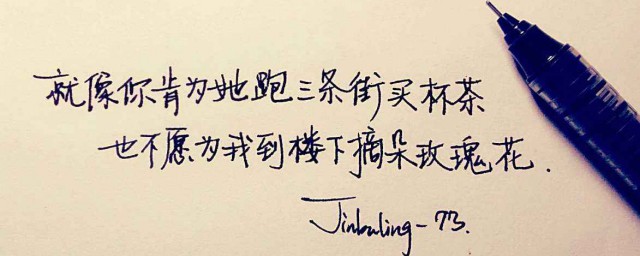 就像你肯为她跑三条街买杯茶
也不愿为我到楼下摘朵玫瑰花.
Jinbuling-73.